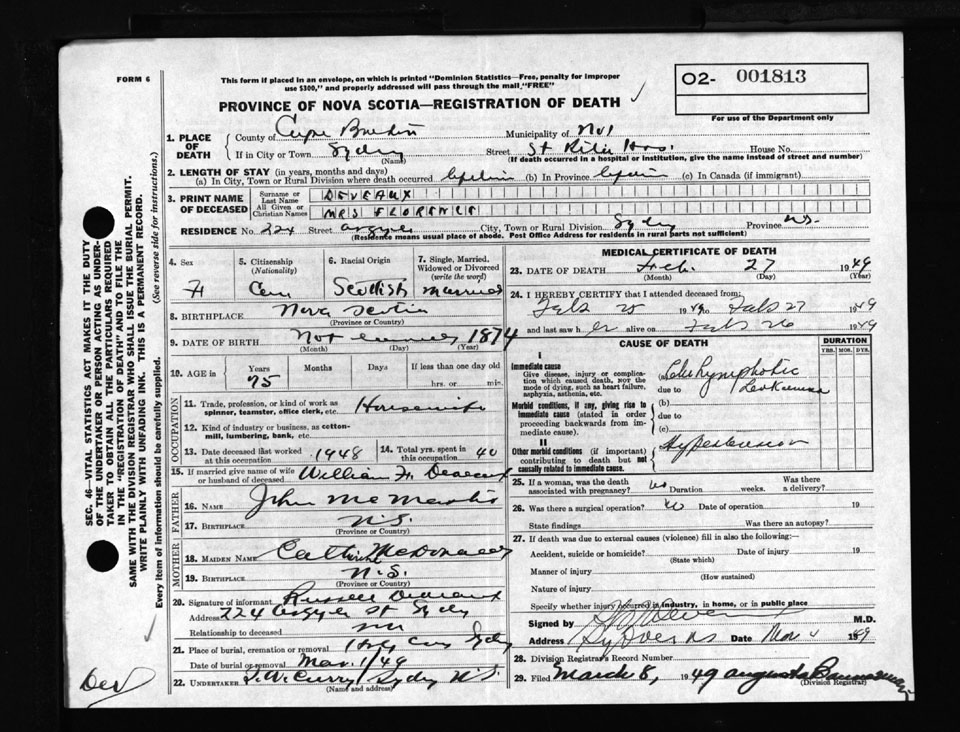 FORM 6
This form if placed in an envelope, on which is printed "Dominion Statistics—Free, penalty for improper
use $300," and properly addressed will pass through the mail "FREE"
02- 001813
For use of the Department only
PROVINCE OF NOVA SCOTIA—REGISTRATION OF DEATH
1. PLACE OF DEATH
County of Cape Breton Municipality of
If in City or Town Sydney (Name) Street St Rita Hos. House No.
(If death occurred in a hospital or institution, give the name instead of street and number)
2. LENGTH OF STAY (in years, months and days)
(a) In City, Town or Rural Division where death occurred (b) In Province (c) In Canada (if immigrant)
3. PRINT NAME OF DECEASED
Surname or Last Name DEVEAUX
All Given or Christian Names MRS FLORENCE
RESIDENCE No. 224 Street Argyle City, Town or Rural Division Sydney Province N.S.
(Residence means usual place of abode. Post Office Address for residents in rural parts not sufficient)
4. Sex F
5. Citizenship (Nationality) Can
6. Racial Origin Scottish
7. Single, Married, Widowed or Divorced (write the word) Married
8. BIRTHPLACE Nova Scotia
(Province or Country)
9. DATE OF BIRTH Not 1874
(Month) (Day) (Year)
10. AGE in Years 75 Months Days If less than one day old hrs. or min.
OCCUPATION
11. Trade, profession, or kind of work as spinner, teamster, office clerk, etc. Housewife
12. Kind of industry or business, as cotton-mill, lumbering, bank, etc.
13. Date deceased last worked at this occupation 1948
14. Total yrs. spent in this occupation 40
15. If married give name of wife or husband of deceased William H. Deveaux
FATHER
16. NAME John
17. BIRTHPLACE N.S.
(Province or Country)
MOTHER
18. MAIDEN NAME Catherine McDonald
19. BIRTHPLACE N.S.
(Province or Country)
20. Signature of informant Russell Deveaux
Address 224 Argyle St Sydney
Relationship to deceased
21. Place of burial, cremation or removal Sydney
Date of burial or removal Mar. 1/49
22. UNDERTAKER T. W. Curry Sydney N.S.
(Name and address)
MEDICAL CERTIFICATE OF DEATH
23. DATE OF DEATH Feb. 27 1949
(Month) (Day) (Year)
24. I HEREBY CERTIFY that I attended deceased from:
Feb 25 1949 to Feb 27 1949
and last saw her alive on Feb 26 1949
CAUSE OF DEATH
DURATION
YRS. MOS. DYS.
I
Immediate cause
Give disease, injury or complication which caused death, not the mode of dying, such as heart failure, asphyxia, asthenia, etc.
(a) Leukaemia
due to
Morbid conditions, if any, giving rise to immediate cause (stated in order proceeding backwards from immediate cause).
(b)
due to
(c)
II
Other morbid conditions (if important) contributing to death but not causally related to immediate cause.
Hypertension
25. If a woman, was the death associated with pregnancy? No Duration weeks. Was there a delivery?
26. Was there a surgical operation? No Date of operation 19
State findings Was there an autopsy?
27. If death was due to external causes (violence) fill in also the following:
Accident, suicide or homicide? Date of injury 19
(State which)
Manner of injury
(How sustained)
Nature of injury
Specify whether injury occurred in industry, in home, or in public place
Signed by M.D.
Address Sydney N.S. Date Mar 4 1949
28. Division Registrar's Record Number
29. Filed March 8, 1949 Augusta
(Division Registrar)
SEC. 46—VITAL STATISTICS ACT MAKES IT THE DUTY
OF THE UNDERTAKER OR PERSON ACTING AS UNDER-
TAKER TO OBTAIN ALL THE PARTICULARS REQUIRED
IN THE "REGISTRATION OF DEATH" AND TO FILE THE
SAME WITH THE DIVISION REGISTRAR WHO SHALL ISSUE THE BURIAL PERMIT.
WRITE PLAINLY WITH UNFADING INK. THIS IS A PERMANENT RECORD.
Every item of information should be carefully supplied. (See reverse side for instructions.)
Dev